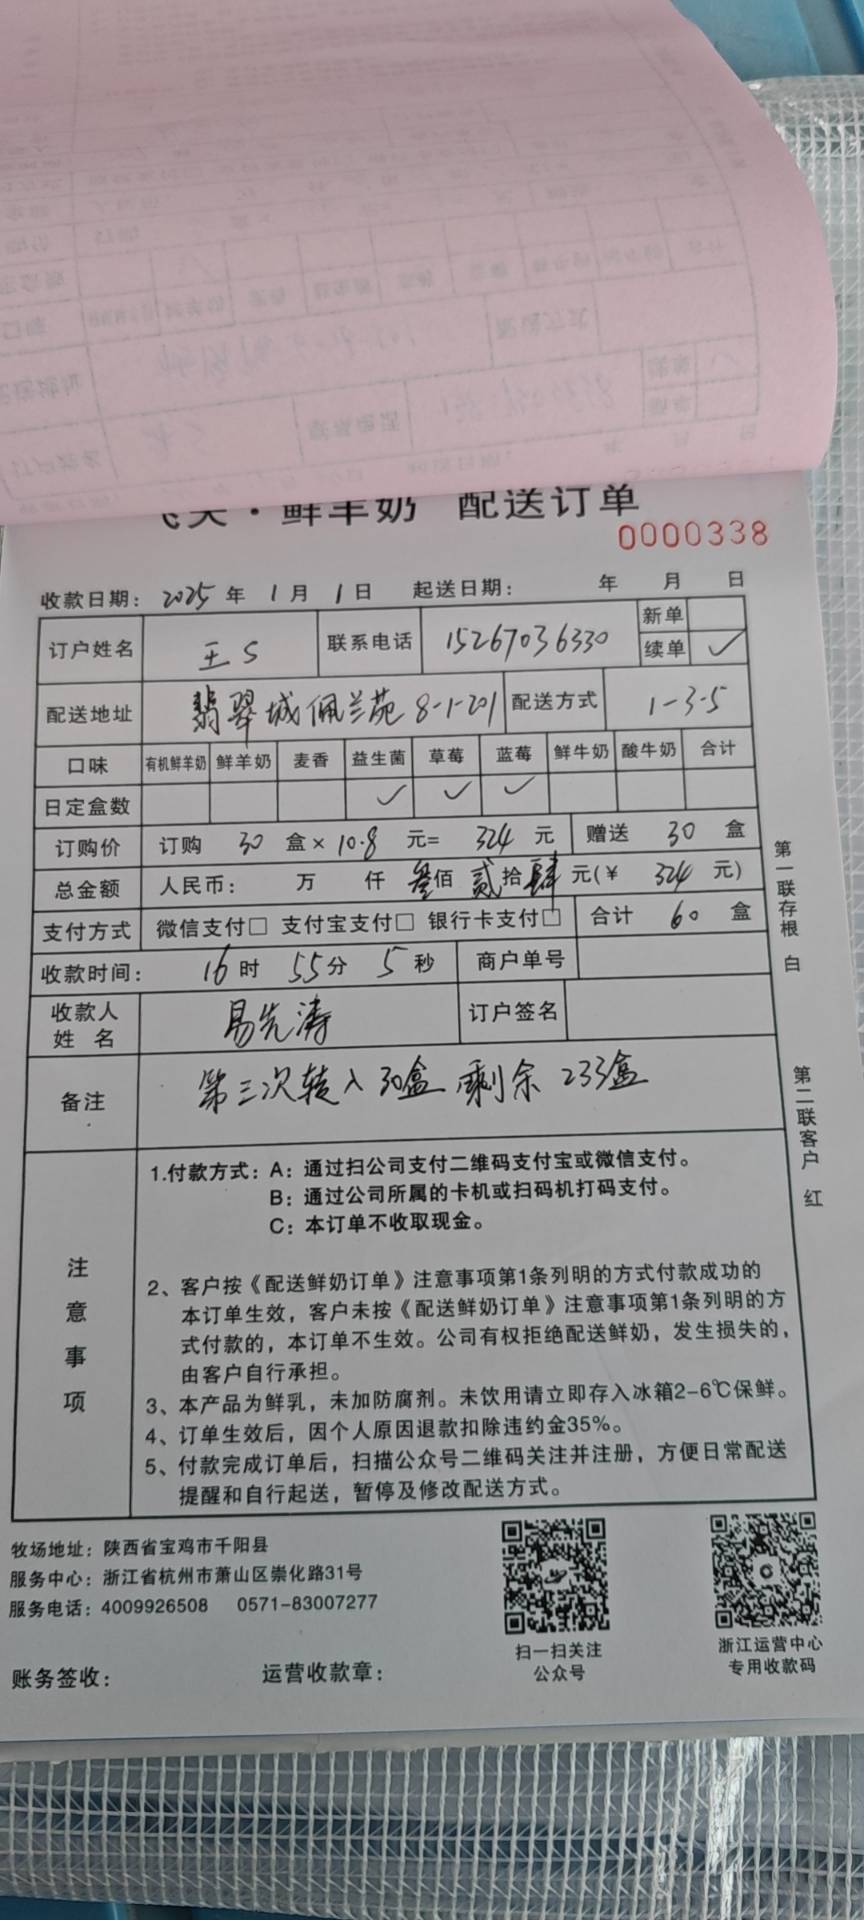 飞天·鲜羊奶 配送订单
0000338
收款日期：2025年 1月 1日 起送日期： 年 月 日
订户姓名 王S 联系电话 15267036330 新单
续单 ✓
配送地址 翡翠城佩兰苑8-1-201 配送方式 1-3-5
口味 有机鲜羊奶 鲜羊奶 麦香 益生菌 草莓 蓝莓 鲜牛奶 酸牛奶 合计
日定盒数 ✓ ✓ ✓
订购价 订购 30 盒×10.8 元= 324 元 赠送 30 盒
总金额 人民币： 万 仟 叁佰 贰拾肆元(¥ 324 元)
支付方式 微信支付□ 支付宝支付□ 银行卡支付□ 合计 60 盒
收款时间： 16时 55分 5秒 商户单号
收款人姓名 易先涛 订户签名
备注 第三次转入30盒 剩余 233盒
注意事项
1.付款方式：A：通过扫公司支付二维码支付宝或微信支付。
B：通过公司所属的卡机或扫码机打码支付。
C：本订单不收取现金。
2、客户按《配送鲜奶订单》注意事项第1条列明的方式付款成功的
本订单生效，客户未按《配送鲜奶订单》注意事项第1条列明的方
式付款的，本订单不生效。公司有权拒绝配送鲜奶，发生损失的，
由客户自行承担。
3、本产品为鲜乳，未加防腐剂。未饮用请立即存入冰箱2-6℃保鲜。
4、订单生效后，因个人原因退款扣除违约金35%。
5、付款完成订单后，扫描公众号二维码关注并注册，方便日常配送
提醒和自行起送，暂停及修改配送方式。
第一联存根 白
第二联客户 红
牧场地址：陕西省宝鸡市千阳县
服务中心：浙江省杭州市萧山区崇化路31号
服务电话：4009926508 0571-83007277
扫一扫关注
公众号
浙江运营中心
专用收款码
账务签收： 运营收款章：